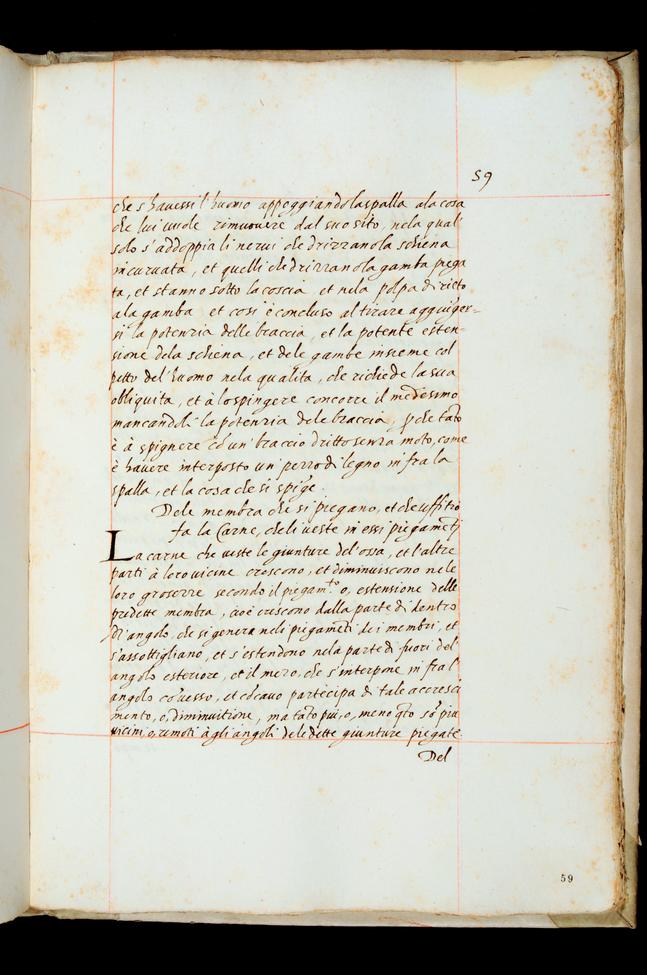 59
che s'havessi l'huomo appoggiando la spalla ala cosa
che lui vuole rimuovere dal suo sito, nela qual
solo s'addoppia li nervi che drizzano la schena
incurvata, et quelli che drizzano la gamba piega
ta, et stanno sotto la coscia et nela polpa di rieto
ala gamba et cosi è concluso al tirare aggiũger=
si la potenzia delle braccia, et la potente esten=
sione dela schena, et dele gambe insieme col
petto del'huomo nela qualita, che richiede la sua
obliquita, et à lo spingere concorre il medesimo
mancandoli la potenzia dele braccia, p che tãto
è à spignere cõ un' braccio dritto senza moto, come
è havere interposto un' pezzo di legno in fra la
spalla, et la cosa che si spĩge.
Dele membra che si piegano, et che uffitio
fa la Carne, che li veste in essi piegamẽti
La carne che veste le giunture del'ossa, et l'altre
parti à loro vicine crescono, et diminuiscono nele
loro grosezze secondo il piegam.to o, estensione delle
predette membra, cioè crescono dalla parte di dentro
di angolo, che si genera neli piegamẽti dei membri, et
s'assottigliano, et s'estendono nela parte di fuori del'
angolo esteriore, et il mezo, che s'interpone in fra l'
angolo cõvesso, et cõcavo partecipa di tale accresci
mento, o, diminuitione, ma tãto più, o, meno q̃to sõ più
vicini, o, remoti à gli angoli dele dette giunture piegate.
Del
59